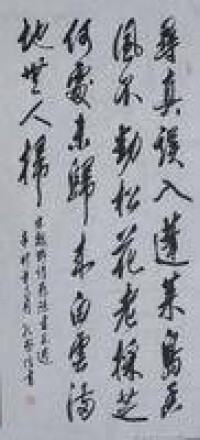 尋真誤入蓬萊島香
風不動松花老採芝
何處未歸來白雲滿
地無人掃